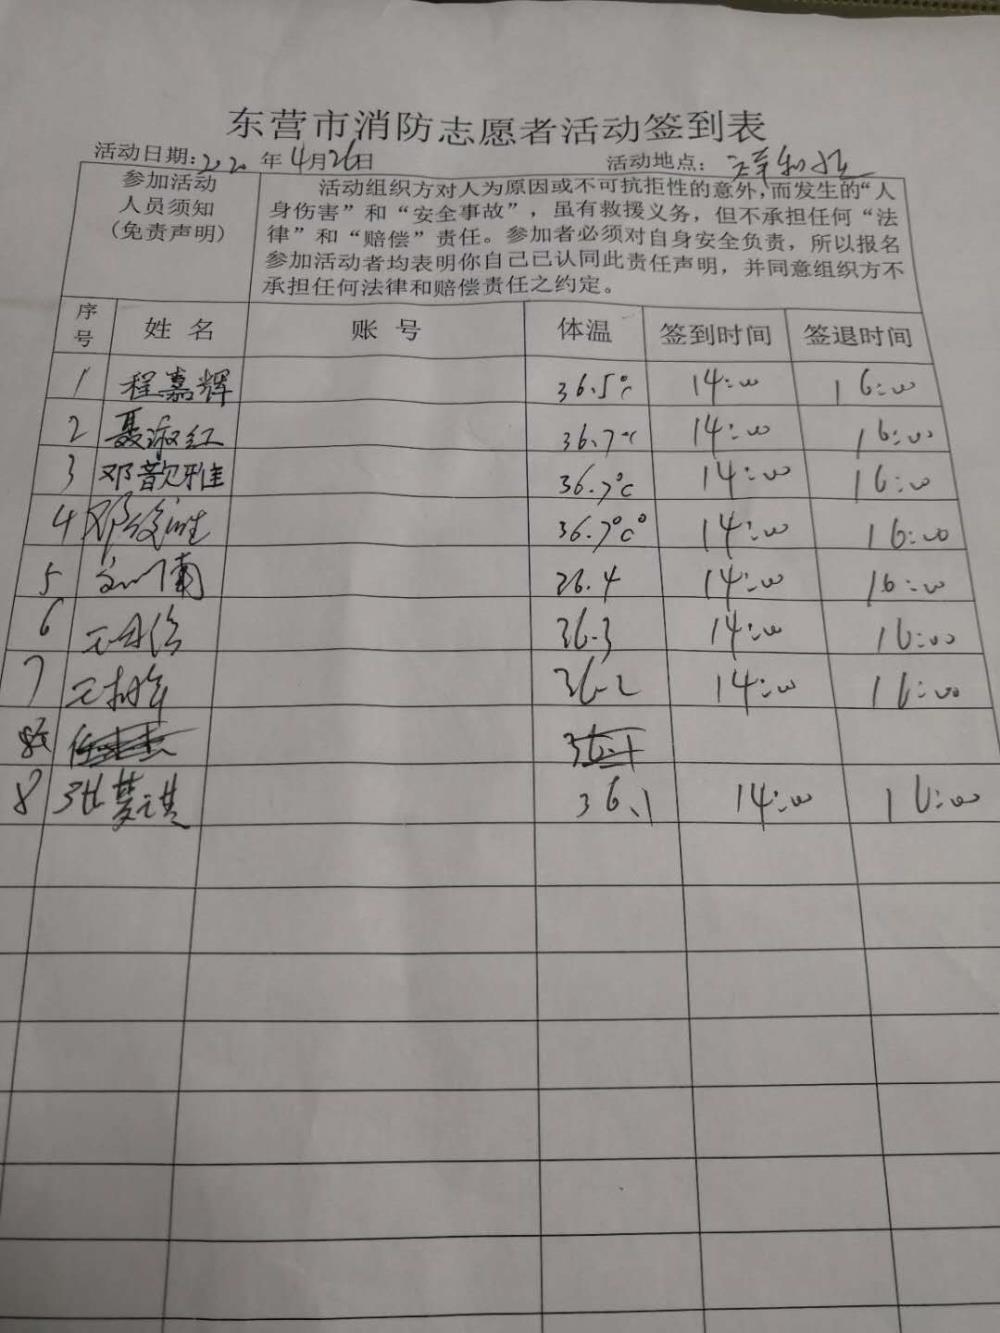 东营市消防志愿者活动签到表
活动日期：2020年4月26日 活动地点：祥和
参加活动人员须知（免责声明）
活动组织方对人为原因或不可抗拒性的意外，而发生的“人
身伤害”和“安全事故”，虽有救援义务，但不承担任何“法
律”和“赔偿”责任。参加者必须对自身安全负责，所以报名
参加活动者均表明你自己已认同此责任声明，并同意组织方不
承担任何法律和赔偿责任之约定。
序号 姓名 账号 体温 签到时间 签退时间
1 程嘉辉 36.5℃ 14:00 16:00
2 聂淑红 36.7℃ 14:00 16:00
3 邓歆雅 36.7℃ 14:00 16:00
4 邓 36.7℃ 14:00 16:00
5 36.4 14:00 16:00
6 王 36.3 14:00 16:00
7 王树军 36.2 14:00 16:00
8 张梦琪 36.1 14:00 16:00